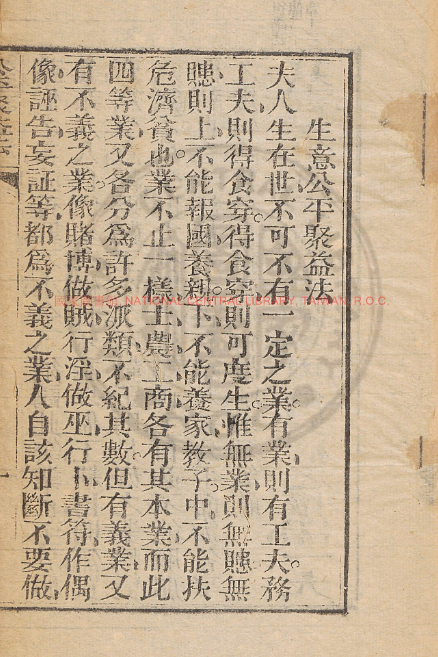 生意公平聚益法
夫人生在世不可不有一定之業有業則有工夫務
工夫則得食穿得食穿則可度生惟無業則無賜無
賜則上不能報國養親下不能養家教子中不能扶
危濟貧也業不止一樣士農工商各有其本業而此
四等業又各分爲許多派類不紀其數但有義業又
有不義之業像賭博做賊行淫做巫行卜書符作偶
像誣告妄証等都爲不義之業人自該知斷不要做
NATIONAL CENTRAL LIBRARY, TAIWAN, R.O.C.